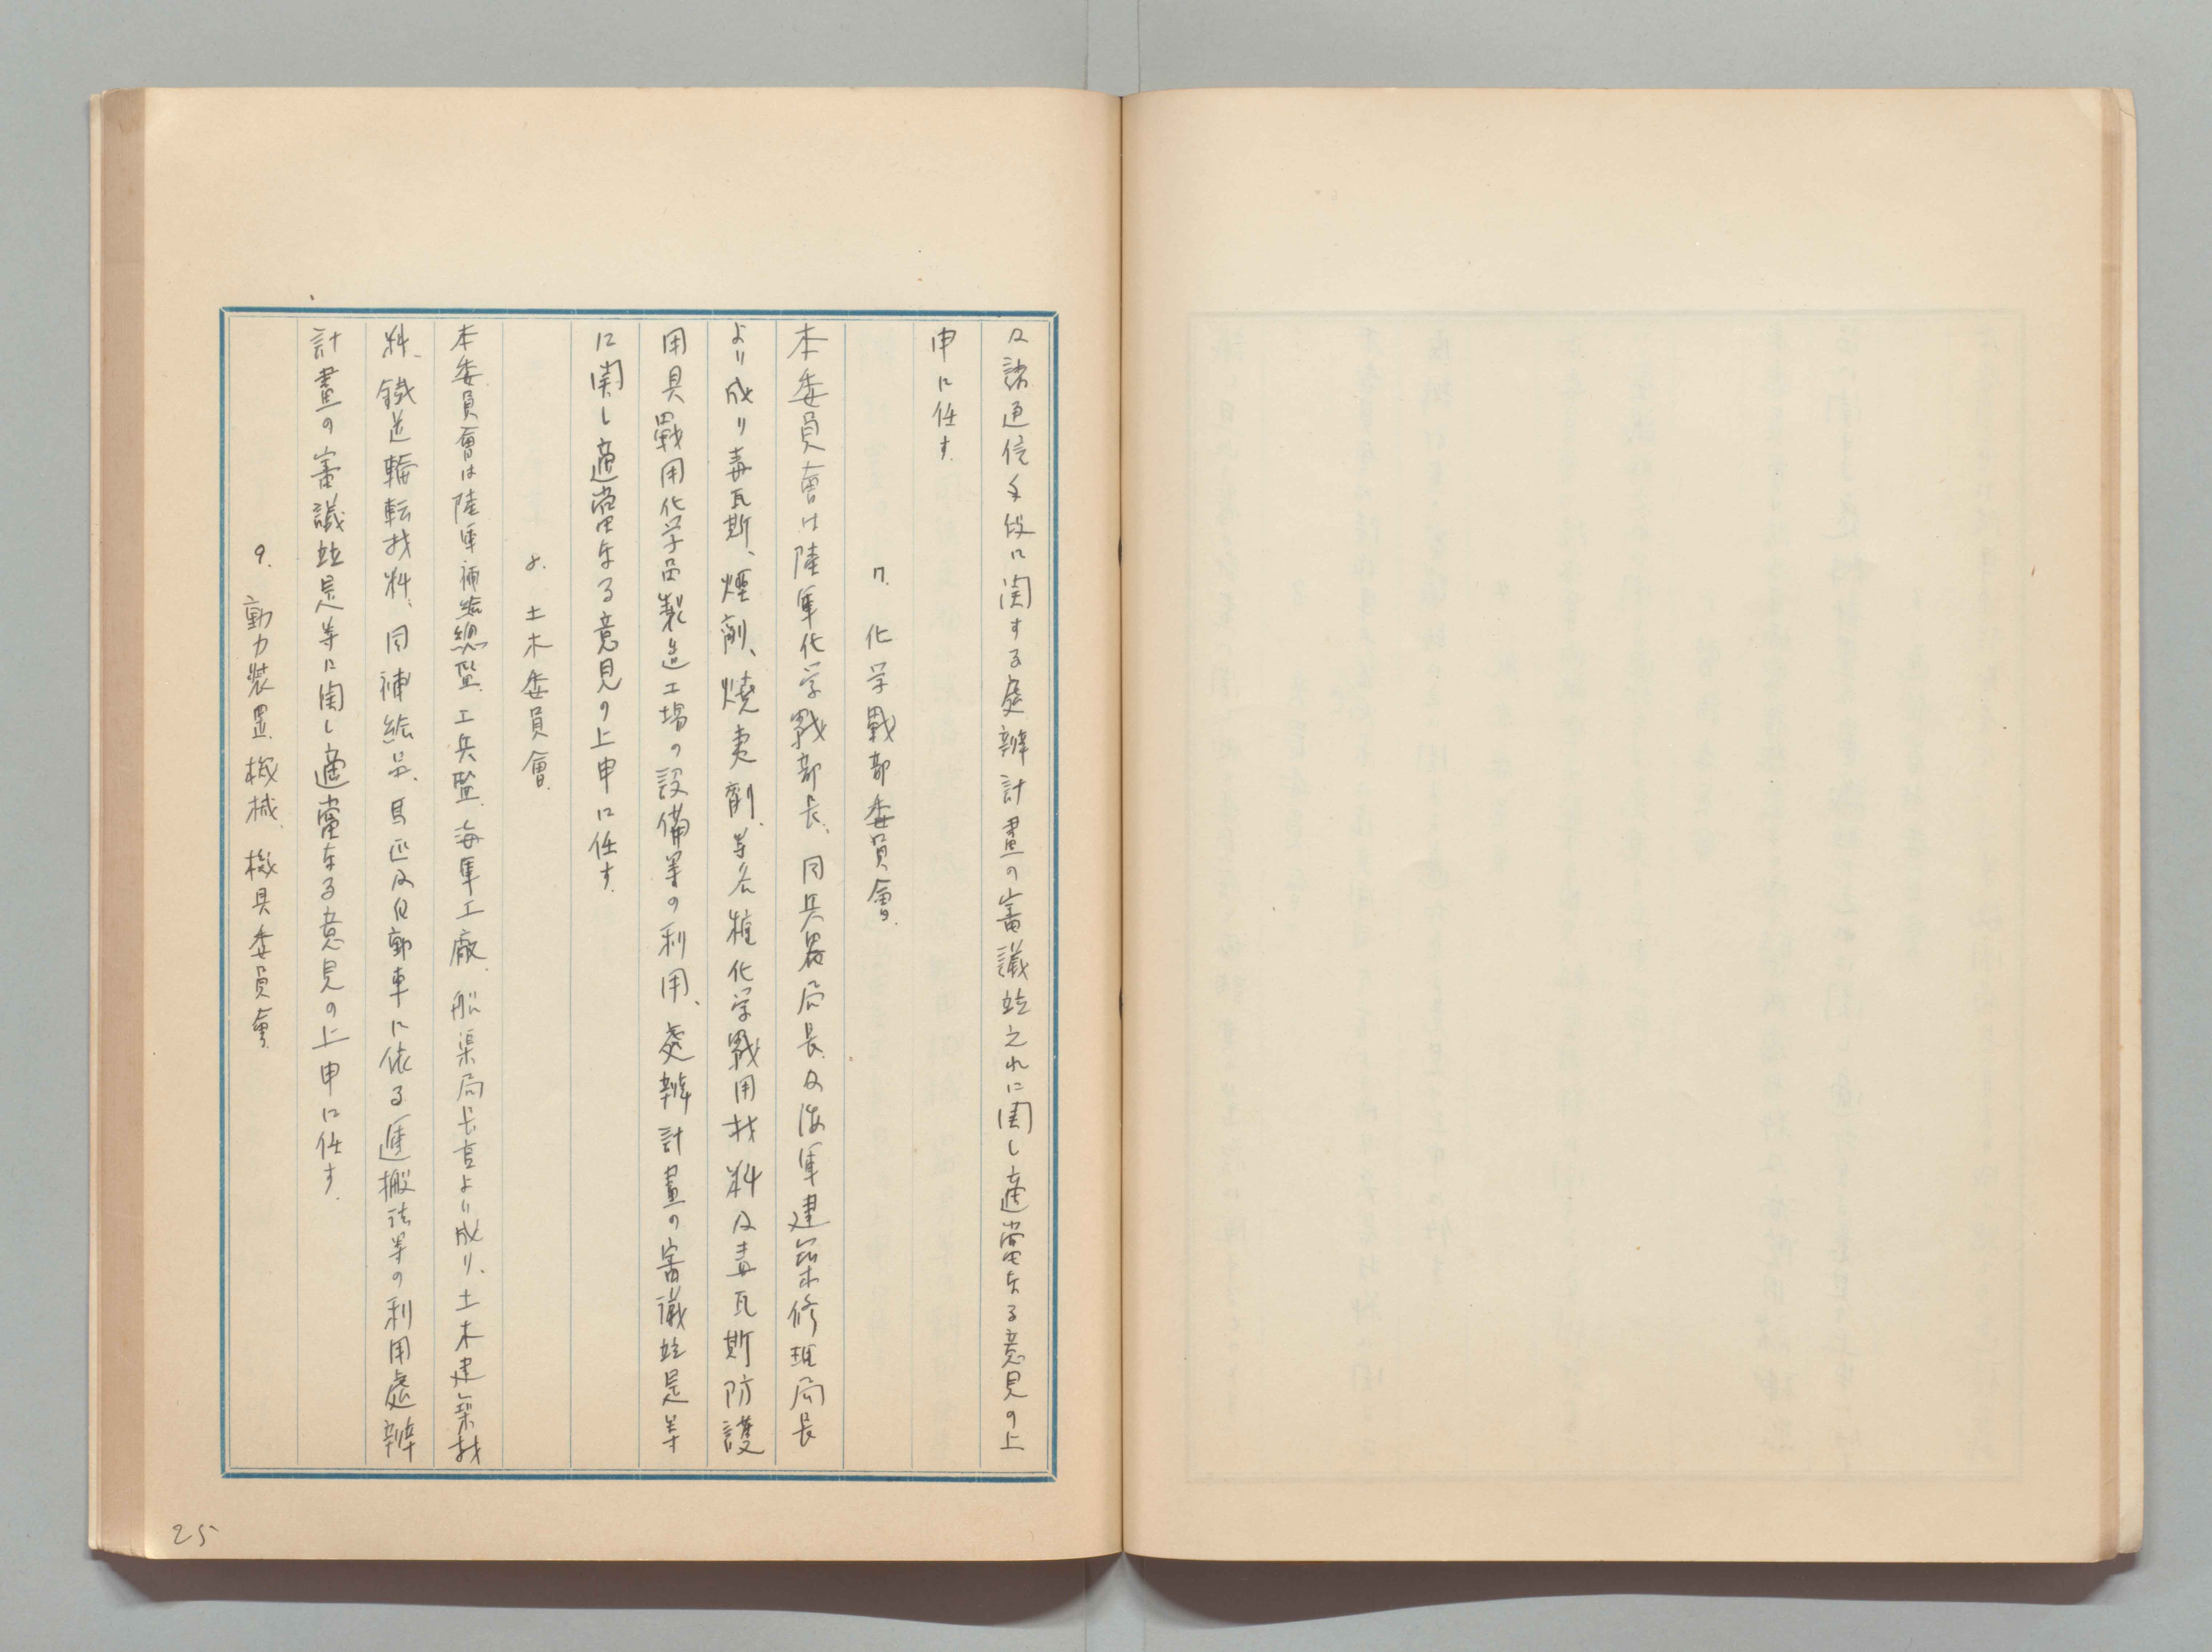 及諸通信手段に関する處辨計畫の審議並之れに関し適當なる意見の上
申に任す.
7. 化学戰部委員會.
本委員會は陸軍化学戰部長、同兵器局長及海軍建築修理局長
より成り毒瓦斯、煙劑、燒夷劑、等各種化学戰用材料及毒瓦斯防護
用具戰用化学品製造工場の設備等の利用、處辨計畫の審議並是等
に関し適當なる意見の上申に任す.
8. 土木委員會.
本委員會は陸軍補給總監、工兵監、海軍工廠、船渠局長官より成り、土木建築材
料、鐵道輪転材料、同補給品、馬匹及自動車に依る運搬法等の利用處辨
計畫の審議並是等に関し適當なる意見の上申に任す.
9. 動力裝置、機械、機具委員會.
25